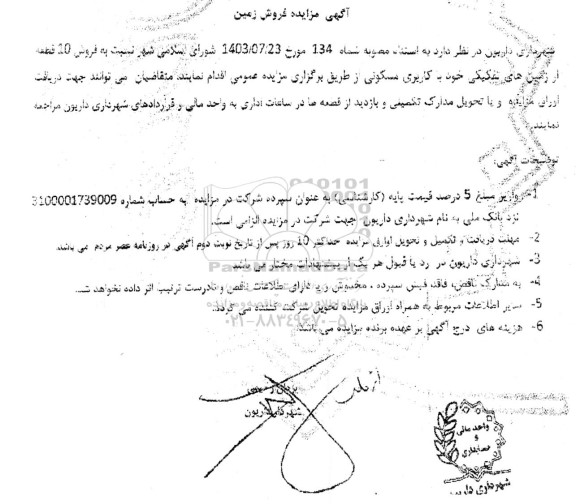 آگهی مزایده فروش زمین
شهرداری داریون در نظر دارد به استناد مصوبه شماره 134 مورخ 1403/07/23 شورای اسلامی شهر نسبت به فروش 10 قطعه
از زمین های تفکیکی خود با کاربری مسکونی از طریق برگزاری مزایده عمومی اقدام نمایند. متقاضیان می توانند جهت دریافت
اوراق مزایده و یا تحویل مدارک تضمینی و بازدید از قطعه ها در ساعات اداری به واحد مالی و قراردادهای شهرداری داریون مراجعه
نمایند.
توضیحات آگهی:
1- واریز مبلغ 5 درصد قیمت پایه (کارشناسی) به عنوان سپرده شرکت در مزایده به حساب شماره 3100001739009
نزد بانک ملی به نام شهرداری داریون جهت شرکت در مزایده الزامی است.
2- مهلت دریافت، تکمیل و تحویل اوراق مزایده حداکثر 10 روز پس از تاریخ نوبت دوم آگهی در روزنامه عصر مردم می باشد
3- شهرداری داریون در رد یا قبول هر یک از پیشنهادات مختار می باشد
4- به مدارک ناقص، فاقد فیش سپرده، مخدوش و یا دارای اطلاعات ناقص و نادرست ترتیب اثر داده نخواهد شد.
5- سایر اطلاعات مربوط به همراه اوراق مزایده تحویل شرکت کننده می گردد.
6- هزینه های درج آگهی بر عهده برنده مزایده می باشد.
۰۲۱-۸۸۳۴۹۶۷۰-۵
شهردار داریون
واحد مالی
و
حسابداری
شهرداری داریون